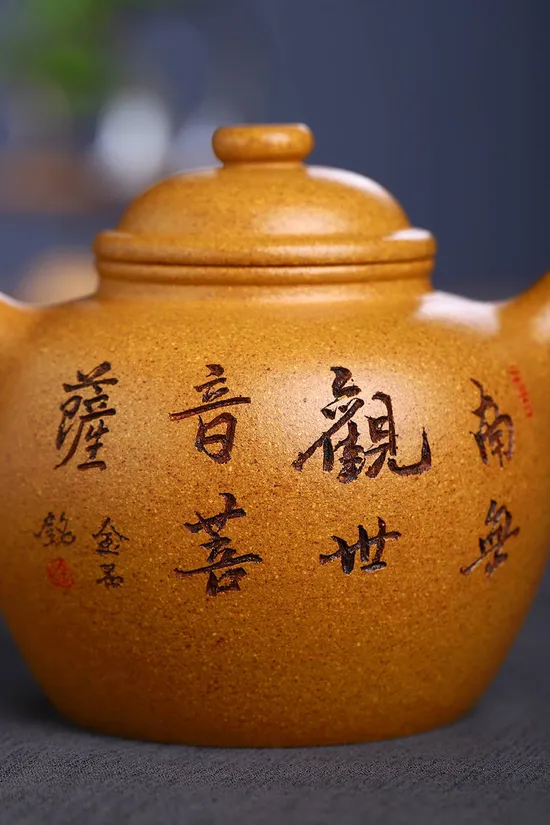 南無
觀世
音菩
薩
銘